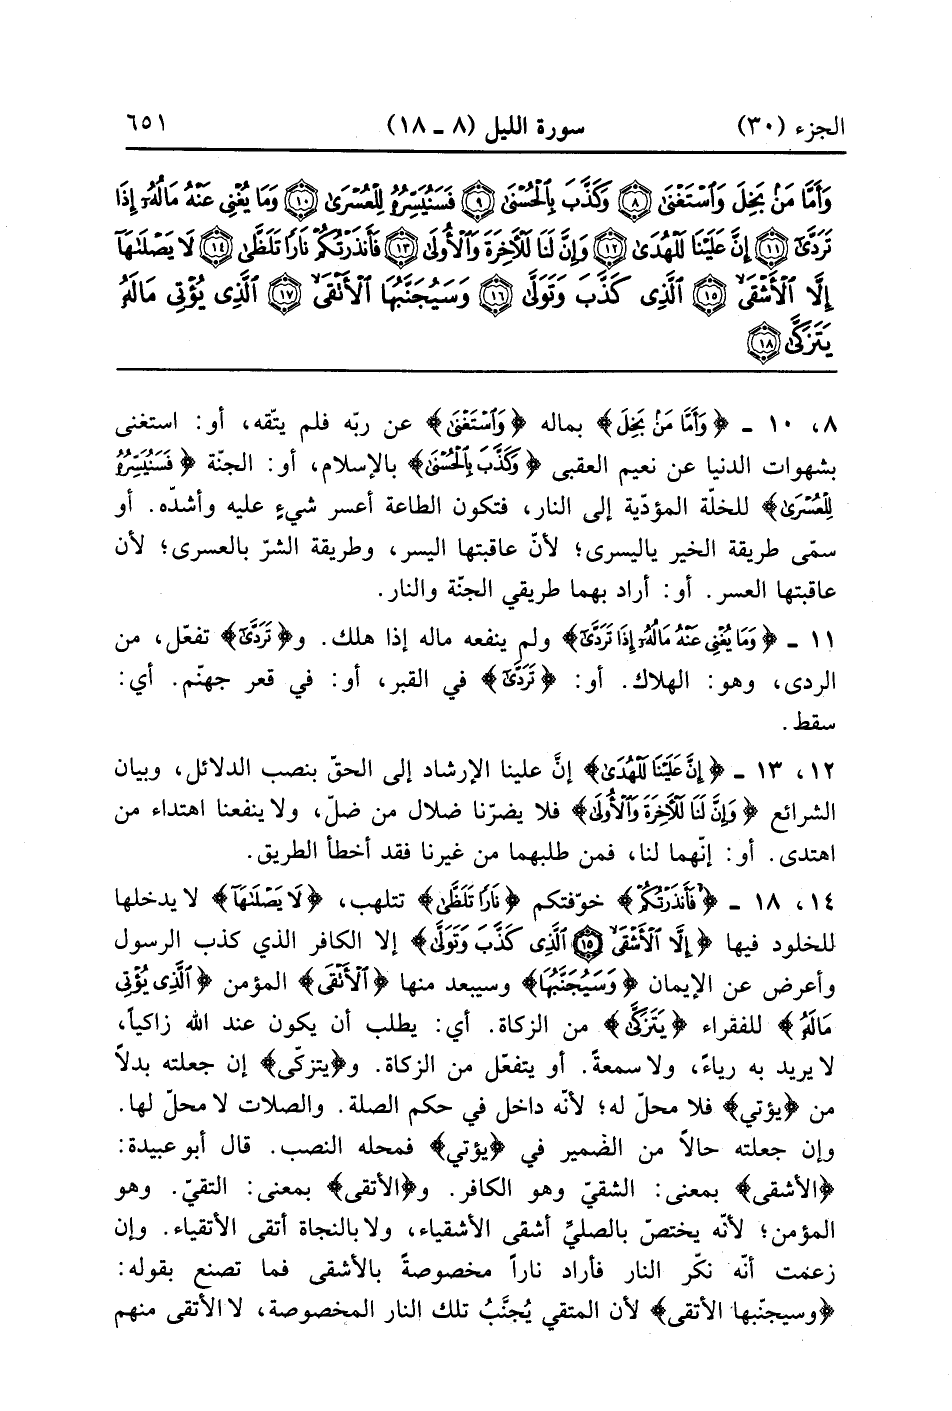 الجزء (٣٠) سورة الليل (٨ ـ ١٨) ٦٥١
وَأَمَّا مَنۢ بَخِلَ وَٱسۡتَغۡنَىٰ ٨ وَكَذَّبَ بِٱلۡحُسۡنَىٰ ٩ فَسَنُيَسِّرُهُۥ لِلۡعُسۡرَىٰ ١٠ وَمَا يُغۡنِي عَنۡهُ مَالُهُۥٓ إِذَا
تَرَدَّىٰٓ ١١ إِنَّ عَلَيۡنَا لَلۡهُدَىٰ ١٢ وَإِنَّ لَنَا لَلۡأٓخِرَةَ وَٱلۡأُولَىٰ ١٣ فَأَنذَرۡتُكُمۡ نَارٗا تَلَظَّىٰ ١٤ لَا يَصۡلَىٰهَآ
إِلَّا ٱلۡأَشۡقَى ١٥ ٱلَّذِي كَذَّبَ وَتَوَلَّىٰ ١٦ وَسَيُجَنَّبُهَا ٱلۡأَتۡقَى ١٧ ٱلَّذِي يُؤۡتِي مَالَهُۥ
يَتَزَكَّىٰ ١٨
٨، ١٠ ـ ﴿وَأَمَّا مَنۢ بَخِلَ﴾ بماله ﴿وَٱسۡتَغۡنَىٰ﴾ عن ربّه فلم يتّقه، أو: استغنى
بشهوات الدنيا عن نعيم العقبى ﴿وَكَذَّبَ بِٱلۡحُسۡنَىٰ﴾ بالإسلام، أو: الجنّة ﴿فَسَنُيَسِّرُهُۥ
لِلۡعُسۡرَىٰ﴾ للخلّة المؤدّية إلى النار، فتكون الطاعة أعسر شيءٍ عليه وأشدّه. أو
سمّى طريقة الخير ياليسرى؛ لأنّ عاقبتها اليسر، وطريقة الشرّ بالعسرى؛ لأن
عاقبتها العسر. أو: أراد بهما طريقي الجنّة والنار.
١١ ـ ﴿وَمَا يُغۡنِي عَنۡهُ مَالُهُۥٓ إِذَا تَرَدَّىٰٓ﴾ ولم ينفعه ماله إذا هلك. و﴿تَرَدَّىٰٓ﴾ تفعّل، من
الردى، وهو: الهلاك. أو: ﴿تَرَدَّىٰٓ﴾ في القبر، أو: في قعر جهنّم. أي:
سقط.
١٢، ١٣ ـ ﴿إِنَّ عَلَيۡنَا لَلۡهُدَىٰ﴾ إنَّ علينا الإرشاد إلى الحقّ بنصب الدلائل، وبيان
الشرائع ﴿وَإِنَّ لَنَا لَلۡأٓخِرَةَ وَٱلۡأُولَىٰ﴾ فلا يضرّنا ضلال من ضلّ، ولا ينفعنا اهتداء من
اهتدى. أو: إنّهما لنا، فمن طلبهما من غيرنا فقد أخطأ الطريق.
١٤، ١٨ ـ ﴿فَأَنذَرۡتُكُمۡ﴾ خوّفتكم ﴿نَارٗا تَلَظَّىٰ﴾ تتلهب، ﴿لَا يَصۡلَىٰهَآ﴾ لا يدخلها
للخلود فيها ﴿إِلَّا ٱلۡأَشۡقَى ١٥ ٱلَّذِي كَذَّبَ وَتَوَلَّىٰ﴾ إلا الكافر الذي كذب الرسول
وأعرض عن الإيمان ﴿وَسَيُجَنَّبُهَا﴾ وسيبعد منها ﴿ٱلۡأَتۡقَى﴾ المؤمن ﴿ٱلَّذِي يُؤۡتِي
مَالَهُۥ﴾ للفقراء ﴿يَتَزَكَّىٰ﴾ من الزكاة. أي: يطلب أن يكون عند الله زاكياً،
لا يريد به رياءً، ولا سمعةً. أو يتفعّل من الزكاة. و﴿يتزكّى﴾ إن جعلته بدلاً
من ﴿يؤتي﴾ فلا محلّ له؛ لأنّه داخل في حكم الصلة. والصلات لا محلّ لها.
وإن جعلته حالاً من الضمير في ﴿يؤتي﴾ فمحله النصب. قال أبو عبيدة:
﴿الأشقى﴾ بمعنى: الشقيّ وهو الكافر. و﴿الأتقى﴾ بمعنى: التقيّ. وهو
المؤمن؛ لأنّه يختصّ بالصليِّ أشقى الأشقياء، ولا بالنجاة أتقى الأتقياء. وإن
زعمت أنّه نكّر النار فأراد ناراً مخصوصةً بالأشقى فما تصنع بقوله:
﴿وسيجنّبها الأتقى﴾ لأن المتقي يُجنَّبُ تلك النار المخصوصة، لا الأتقى منهم